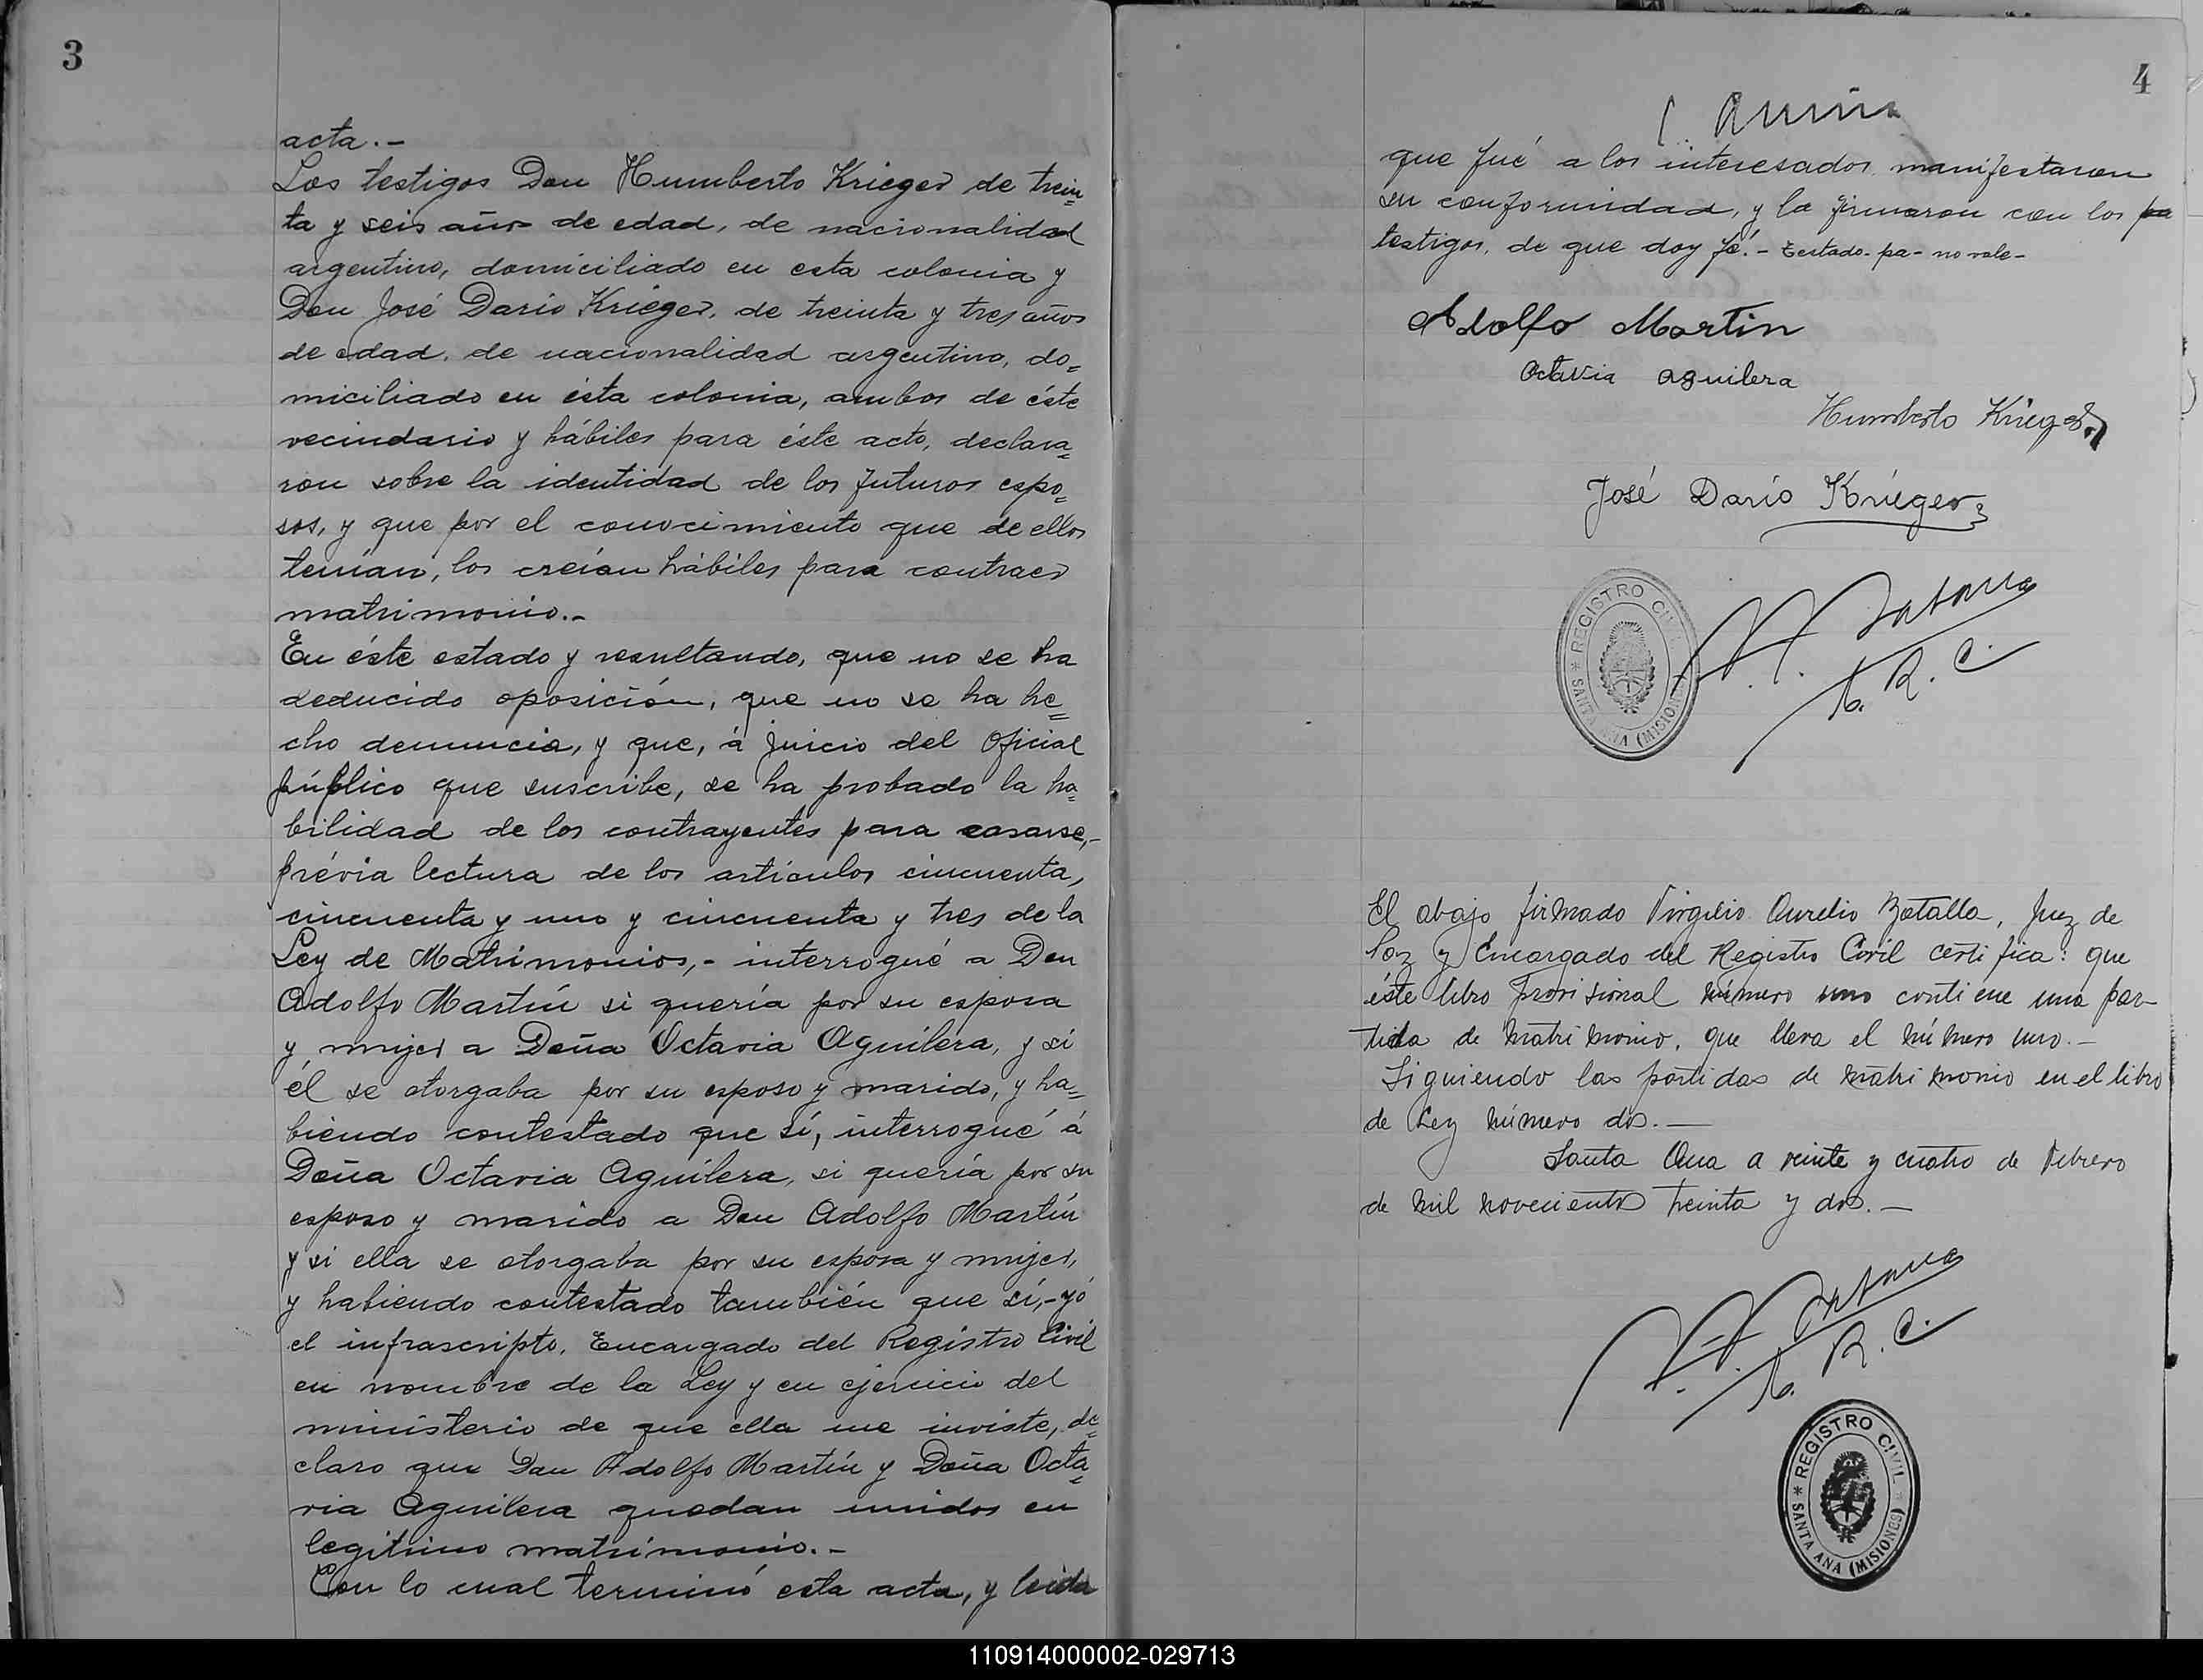 3
acta.-
Los testigos Don Humberto Krieger de trein=
ta y seis años de edad, de nacionalidad
argentino, domiciliado en esta colonia y
Don José Darío Krieger, de treinta y tres años
de edad, de nacionalidad argentino, do=
miciliado en ésta colonia, ambos de éste
vecindario y hábiles para éste acto, declara=
ron sobre la identidad de los futuros espo=
sos, y que por el conocimiento que de ellos
tenían, los creían hábiles para contraer
matrimonio.-
En éste estado y resultando, que no se ha
deducido oposición, que no se ha he=
cho denuncia, y que, á juicio del Oficial
público que suscribe, se ha probado la ha=
bilidad de los contrayentes para casarse,-
prévia lectura de los artículos cincuenta,
cincuenta y uno y cincuenta y tres de la
Ley de Matrimonios,- interrogué a Don
Adolfo Martín si quería por su esposa
y mujer a Doña Octavia Aguilera, y si
él se otorgaba por su esposo y marido, y ha=
biendo contestado que sí, interrogué á
Doña Octavia Aguilera, si quería por su
esposo y marido a Don Adolfo Martín
y si ella se otorgaba por su esposa y mujer,
y habiendo contestado también que sí,- yó
el infrascripto, Encargado del Registro Civil
en nombre de la Ley y en ejercicio del
ministerio de que ella me inviste, de=
claro que Don Adolfo Martín y Doña Octa=
via Aguilera quedan unidos en
legítimo matrimonio.-
Con lo cual terminó esta acta, y leída
4
que fué a los interesados manifestaron
su conformidad, y la firmaron con los pa
testigos, de que doy fé.- Testado- pa- no vale-
Adolfo Martin
Octavia aguilera
Humberto Krieger
José Darío Krieger
REGISTRO CIVIL
* SANTA ANA (MISIONES)
E. R. C.
El abajo firmado Virgilio Aurelio Batalla, Juez de
Paz y Encargado del Registro Civil certifica: que
éste libro provisional número uno contiene una par-
tida de matrimonio, que lleva el número uno.-
Siguiendo las partidas de matrimonio en el libro
de Ley número dos.-
Santa Ana a veinte y cuatro de Febrero
de mil novecientos treinta y dos.-
E. R. C.
* REGISTRO CIVIL *
SANTA ANA (MISIONES)
110914000002-029713